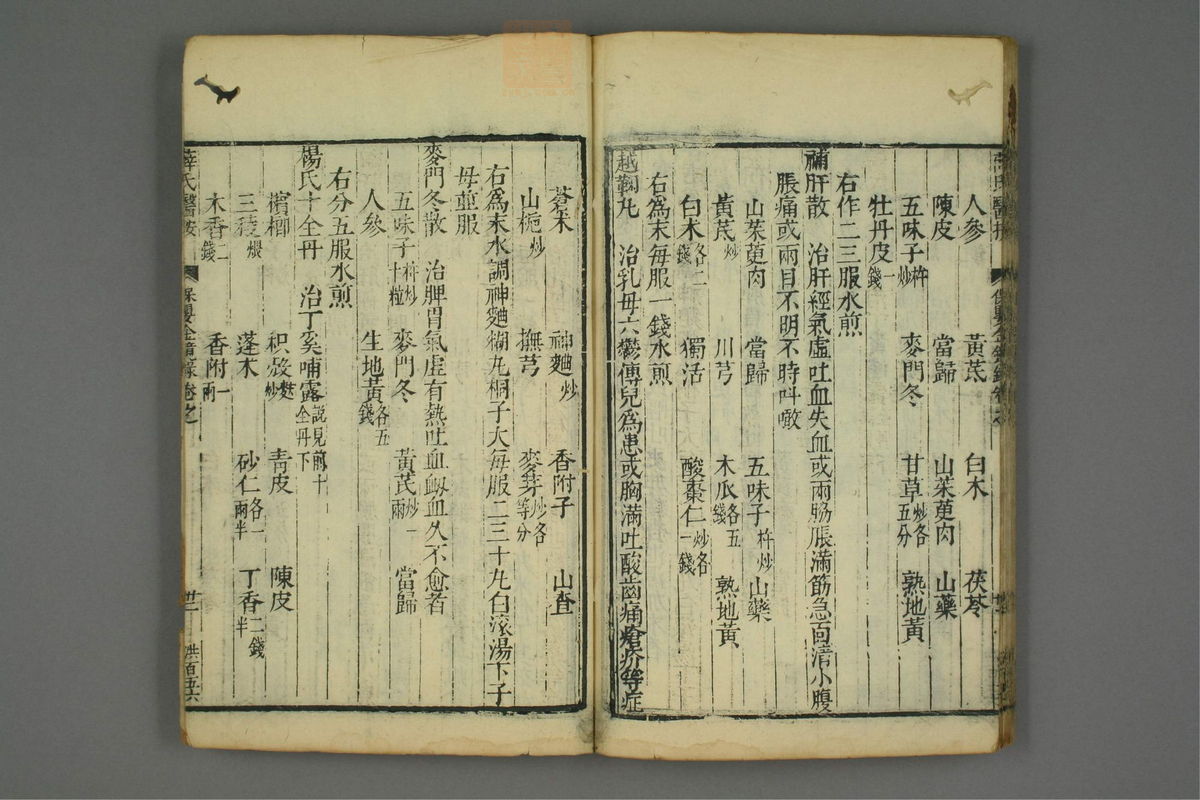 人參 黃芪 白朮 茯苓
陳皮 當歸 山茱萸肉 山藥
五味子杵炒 麥門冬 甘草炒各五分 熟地黃
牡丹皮一錢
右作二三服水煎
補肝散 治肝經氣虛吐血失血或兩脇脹滿筋急面清小腹
脹痛或兩目不明不時叫噉
山茱萸肉 當歸 五味子杵炒 山藥
黃芪炒 川芎 木瓜各五錢 熟地黃
白朮各二錢 獨活 酸棗仁炒各一錢
右為末每服一錢水煎
越鞠丸 治乳母六鬱傳兒為患或胸滿吐酸齒痛瘡疥等症
蒼朮 神麯炒 香附子 山查
山梔炒 撫芎 麥芽炒各等分
右為末水調神麯糊丸桐子大每服二三十丸白滾湯下子
母並服
麥門冬散 治脾胃氣虛有熱吐血衂血久不愈者
五味子杵炒十粒 麥門冬 黃芪炒一兩 當歸
人參 生地黃各五錢
右分五服水煎
楊氏十全丹 治丁奚哺露說見前十全丹下
檳榔 枳殼麩炒 青皮 陳皮
三稜煨 蓬朮 砂仁各一兩半 丁香二錢半
木香二錢 香附一兩
薛氏醫按 保嬰金鏡錄卷之 廿二 洪百五六